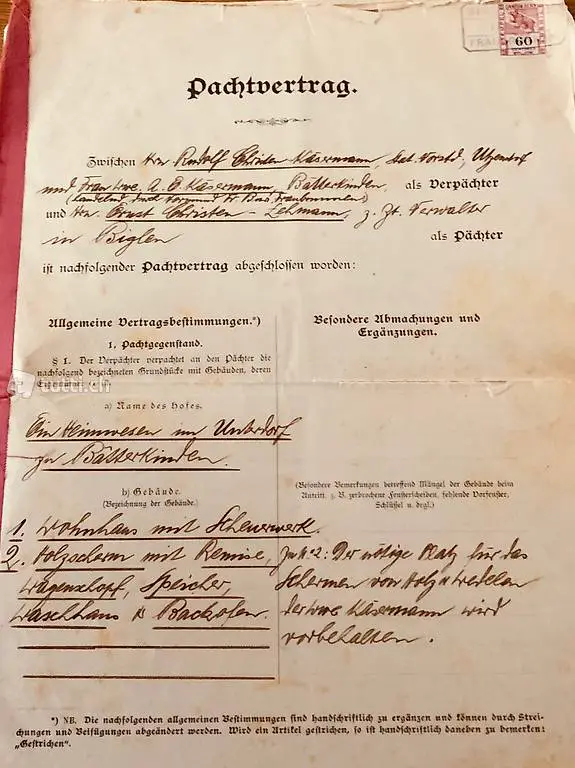 KANTON BERN
60
Pachtvertrag.
Zwischen Hrn Rudolf Christen-Käsermann, Utzenstorf
und Frau Wwe. A. E. Käsermann, Bätterkinden, als Verpächter
und Hrn. Ernst Christen-Lehmann, z. Zt. Verwalter
in Biglen als Pächter
ist nachfolgender Pachtvertrag abgeschlossen worden:
Allgemeine Vertragsbestimmungen.*)
1. Pachtgegenstand.
§ 1. Der Verpächter verpachtet an den Pächter die
nachfolgend bezeichneten Grundstücke mit Gebäuden, deren
tutti.ch
a) Name des Hofes.
Ein Heimwesen im Unterdorf
zu Bätterkinden.
b) Gebäude.
(Bezeichnung der Gebäude.)
1. Wohnhaus mit Scheuerwerk.
2. Holzscherm mit Remise,
Wagenschopf, Speicher,
Waschhaus & Backofen.
Besondere Abmachungen und
Ergänzungen.
(Besondere Bemerkungen betreffend Mängel der Gebäude beim
Antritt, z. B. zerbrochene Fensterscheiben, fehlende Vorfenster,
Schlüssel u. drgl.)
Zu № 2: Der nötige Platz für das
Schermen von Holz u Wedelen
der Wwe Käsermann wird
vorbehalten.
*) NB. Die nachfolgenden allgemeinen Bestimmungen sind handschriftlich zu ergänzen und können durch Strei-
chungen und Beifügungen abgeändert werden. Wird ein Artikel gestrichen, so ist handschriftlich daneben zu bemerken:
„Gestrichen".